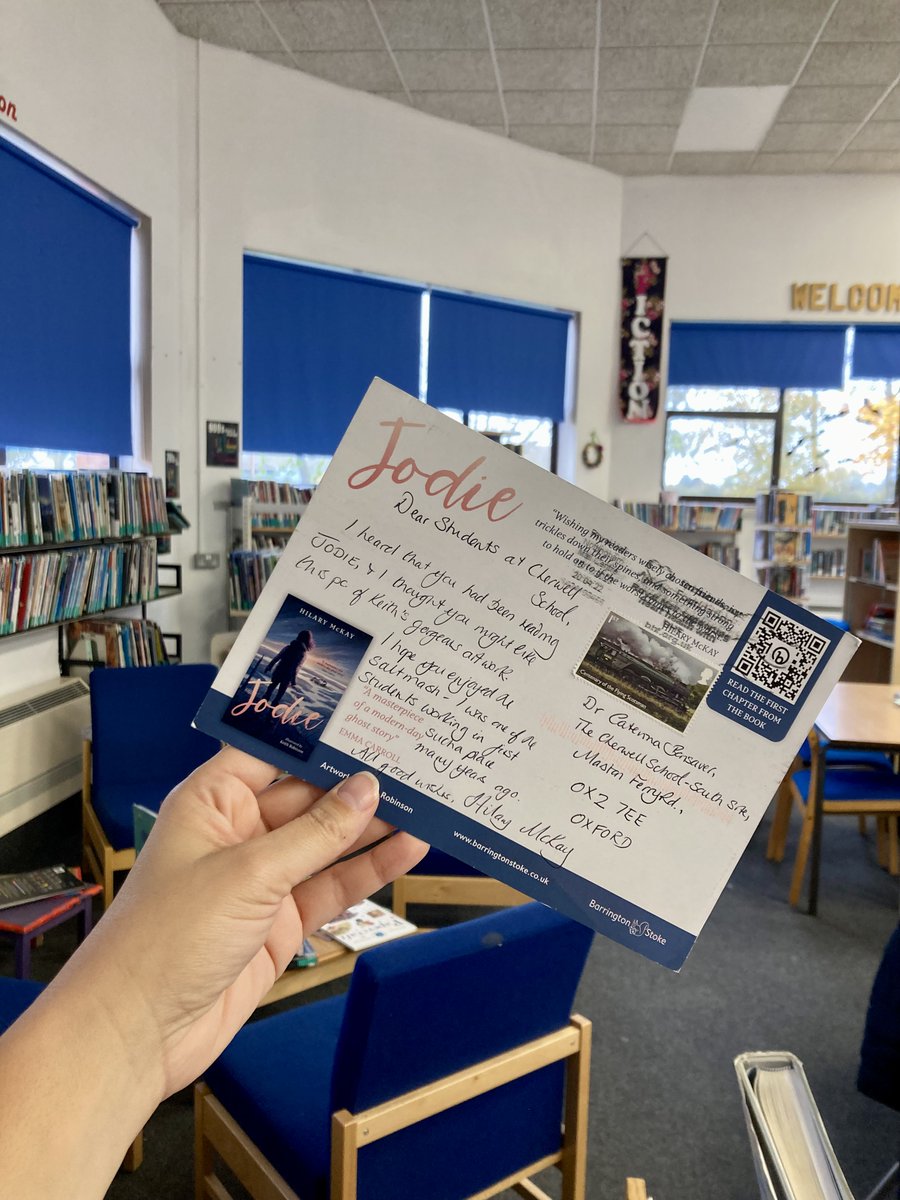 on
FICTION
WELCOM
Jodie
Dear Students at Cherwell
School,
I heard that you had been reading
JODIE, & I thought you might like
this pc
of Keith's gorgeous artwork
I hope you enjoyed the
saltmarsh - I was one of the
students working in just
such a place
many years
ago.
All good wishes, Hilary McKay
HILARY McKAY
Jodie
Illustrated by
Keith Robinson
"A masterpiece
of a modern-day
ghost story"
EMMA CARROLL
Artwork
Robinson
www.barringtonstoke.co.uk
"Wishing my readers
trickles down their spines, and something strong
to hold on to if the world
HILARY McKAY
Centenary of the Flying Scotsman
READ THE FIRST
CHAPTER FROM
THE BOOK
Dr Caterina Bonsaver,
The Cherwell School South Site,
Marston Ferry Rd,
OX2 7EE
OXFORD
Barrington Stoke